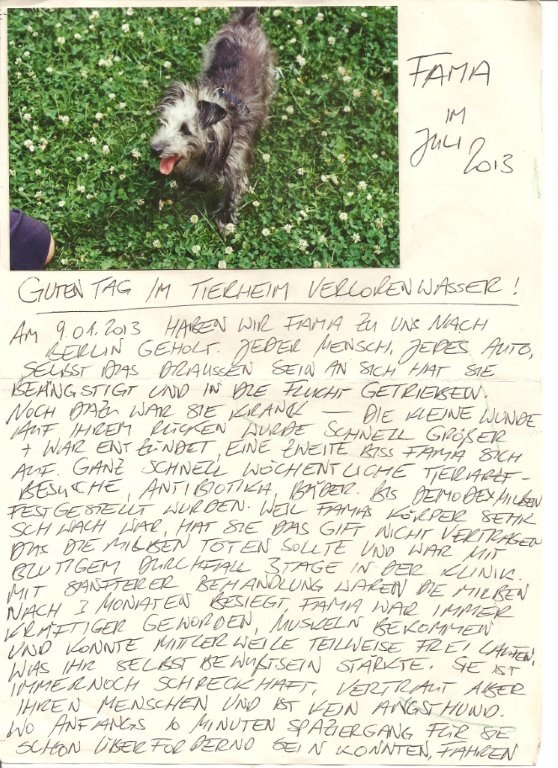 FAMA
IM
JULI
2013
GUTEN TAG IM TIERHEIM VERLORENWASSER!
AM 9.01.2013 HABEN WIR FAMA ZU UNS NACH
BERLIN GEHOLT. JEDER MENSCH, JEDES AUTO,
SELBST DAS DRAUSSEN SEIN AN SICH HAT SIE
BEÄNGSTIGT UND IN DIE FLUCHT GETRIEBEN.
NOCH DAZU WAR SIE KRANK — DIE KLEINE WUNDE
AUF IHREM RÜCKEN WURDE SCHNELL GRÖßER
+ WAR ENTZÜNDET, EINE ZWEITE BISS FAMA SICH
AUF. GANZ SCHNELL WÖCHENTLICHE TIERARZT-
BESUCHE, ANTIBIOTIKA, BÄDER. BIS DEMODEXMILBEN
FESTGESTELLT WURDEN. WEIL FAMAS KÖRPER SEHR
SCHWACH WAR, HAT SIE DAS GIFT NICHT VERTRAGEN
DAS DIE MILBEN TÖTEN SOLLTE UND WAR MIT
BLUTIGEM DURCHFALL 3 TAGE IN DER KLINIK.
MIT SANFTERER BEHANDLUNG WAREN DIE MILBEN
NACH MONATEN BESIEGT, FAMA WAR IMMER
KRÄFTIGER GEWORDEN, MUSKELN BEKOMMEN
UND KONNTE MITTLERWEILE TEILWEISE FREI LAUFEN,
WAS IHR SELBSTBEWUßTSEIN STÄRKTE. SIE IST
IMMERNOCH SCHRECKHAFT, VERTRAUT ABER
IHREN MENSCHEN UND IST KEIN ANGSTHUND.
WO ANFANGS 10 MINUTEN SPAZIERGANG FÜR SIE
SCHON ÜBERFORDERND SEIN KONNTEN, FAHREN